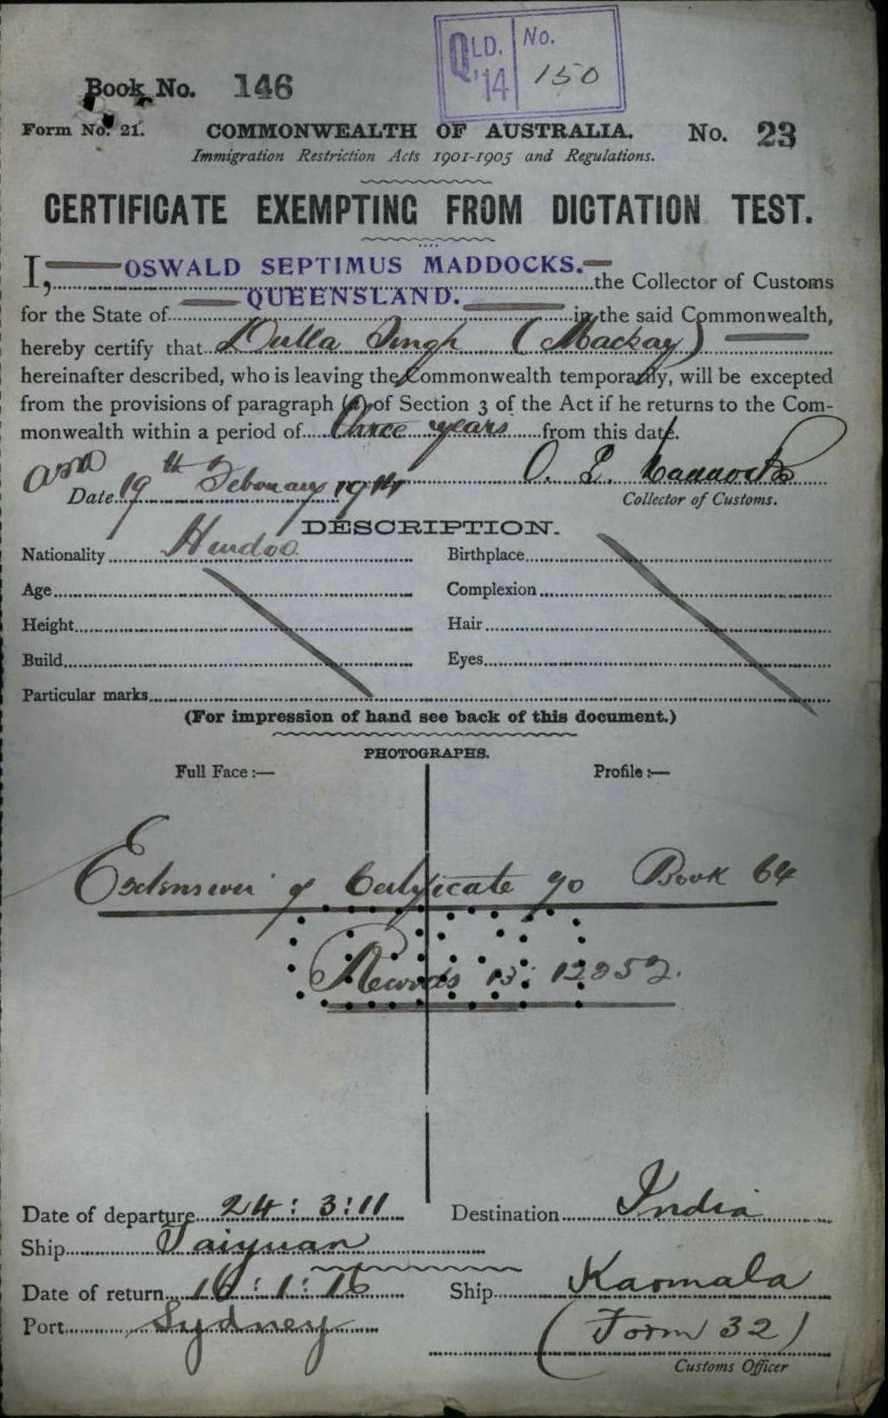 QLD. '14 No. 150
Book No. 146
Form No. 21. COMMONWEALTH OF AUSTRALIA. No. 23
Immigration Restriction Acts 1901-1905 and Regulations.
CERTIFICATE EXEMPTING FROM DICTATION TEST.
I, OSWALD SEPTIMUS MADDOCKS. the Collector of Customs
for the State of QUEENSLAND. in the said Commonwealth,
hereby certify that Dulla Singh (Mackay)
hereinafter described, who is leaving the Commonwealth temporarily, will be excepted
from the provisions of paragraph (a) of Section 3 of the Act if he returns to the Com-
monwealth within a period of three years from this date.
O. S. Maddocks
Date 19th February 1914 Collector of Customs.
DESCRIPTION.
Nationality Hindoo Birthplace
Age Complexion
Height Hair
Build Eyes
Particular marks
(For impression of hand see back of this document.)
PHOTOGRAPHS.
Full Face :— Profile :—
Extension of Certificate 90 Book 64
Records 13: 12352.
Date of departure 24: 3: 11 Destination India
Ship Taiyuan
Date of return 16: 1: 16 Ship Karmala
Port Sydney (Form 32)
Customs Officer